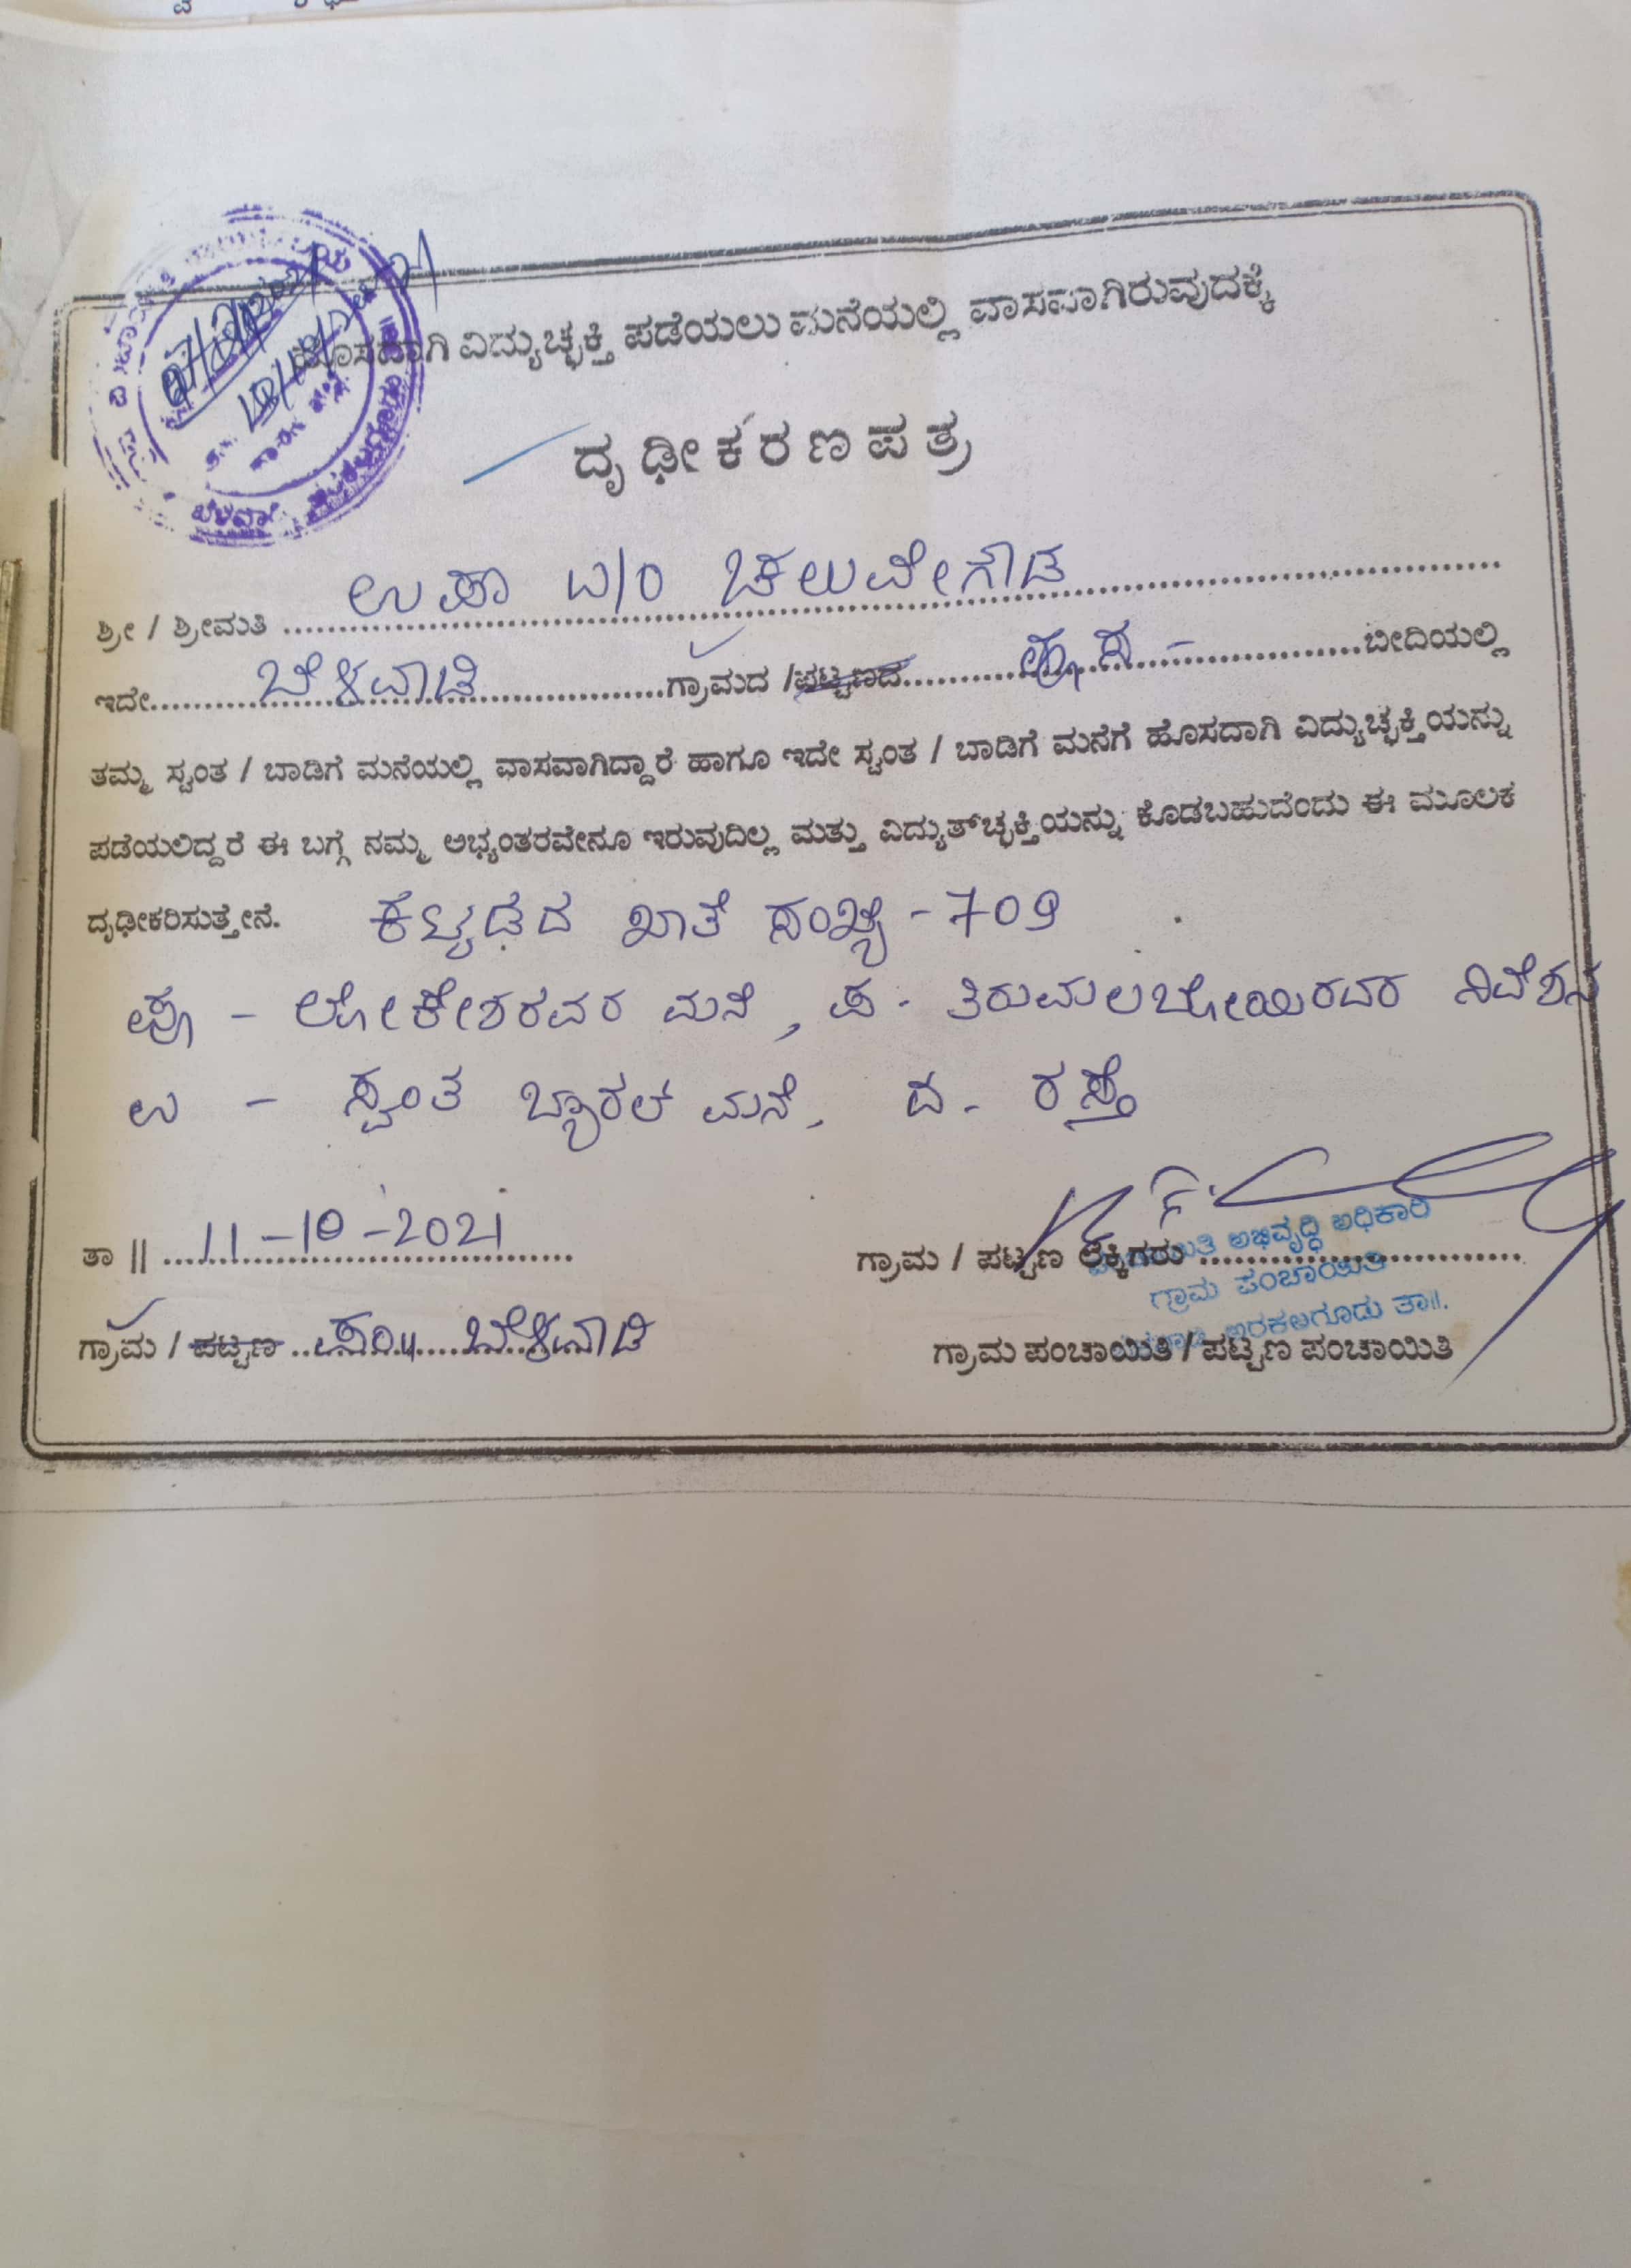 ಹೊಸದಾಗಿ ವಿದ್ಯುಚ್ಛಕ್ತಿ ಪಡೆಯಲು ಮನೆಯಲ್ಲಿ ವಾಸವಾಗಿರುವುದಕ್ಕೆ
ದೃಢೀಕರಣಪತ್ರ
ಶ್ರೀ / ಶ್ರೀಮತಿ ಉಷಾ ಚಲುವೇಗೌಡ
ಇದೇ ಬೆಳವಾಡಿ ಗ್ರಾಮದ / ಪಟ್ಟಣದ ಬೀದಿಯಲ್ಲಿ
ತಮ್ಮ ಸ್ವಂತ / ಬಾಡಿಗೆ ಮನೆಯಲ್ಲಿ ವಾಸವಾಗಿದ್ದಾರೆ ಹಾಗೂ ಇದೇ ಸ್ವಂತ / ಬಾಡಿಗೆ ಮನೆಗೆ ಹೊಸದಾಗಿ ವಿದ್ಯುಚ್ಛಕ್ತಿಯನ್ನು
ಪಡೆಯಲಿದ್ದರೆ ಈ ಬಗ್ಗೆ ನಮ್ಮ ಅಭ್ಯಂತರವೇನೂ ಇರುವುದಿಲ್ಲ ಮತ್ತು ವಿದ್ಯುತ್‌ಚ್ಛಕ್ತಿಯನ್ನು ಕೊಡಬಹುದೆಂದು ಈ ಮೂಲಕ
ದೃಢೀಕರಿಸುತ್ತೇನೆ. ಕಟ್ಟಡದ ಖಾತೆ ಸಂಖ್ಯೆ - 709
ಪೂ - ಲೋಕೇಶರವರ ಮನೆ, ಪ - ತಿರುಮಲಬೋಯಿರವರ ನಿವೇಶನ
ಉ - ಸ್ವಂತ ಮನೆ, ದ - ರಸ್ತೆ
ತಾ || 11-10-2021
ಗ್ರಾಮ / ಪಟ್ಟಣ ಲೆಕ್ಕಿಗರು
ಅಭಿವೃದ್ಧಿ ಅಧಿಕಾರಿ
ಗ್ರಾಮ ಪಂಚಾಯಿತಿ
ಅರಕಲಗೂಡು ತಾ||.
ಗ್ರಾಮ / ಪಟ್ಟಣ ಬೆಳವಾಡಿ
ಗ್ರಾಮ ಪಂಚಾಯಿತಿ / ಪಟ್ಟಣ ಪಂಚಾಯಿತಿ